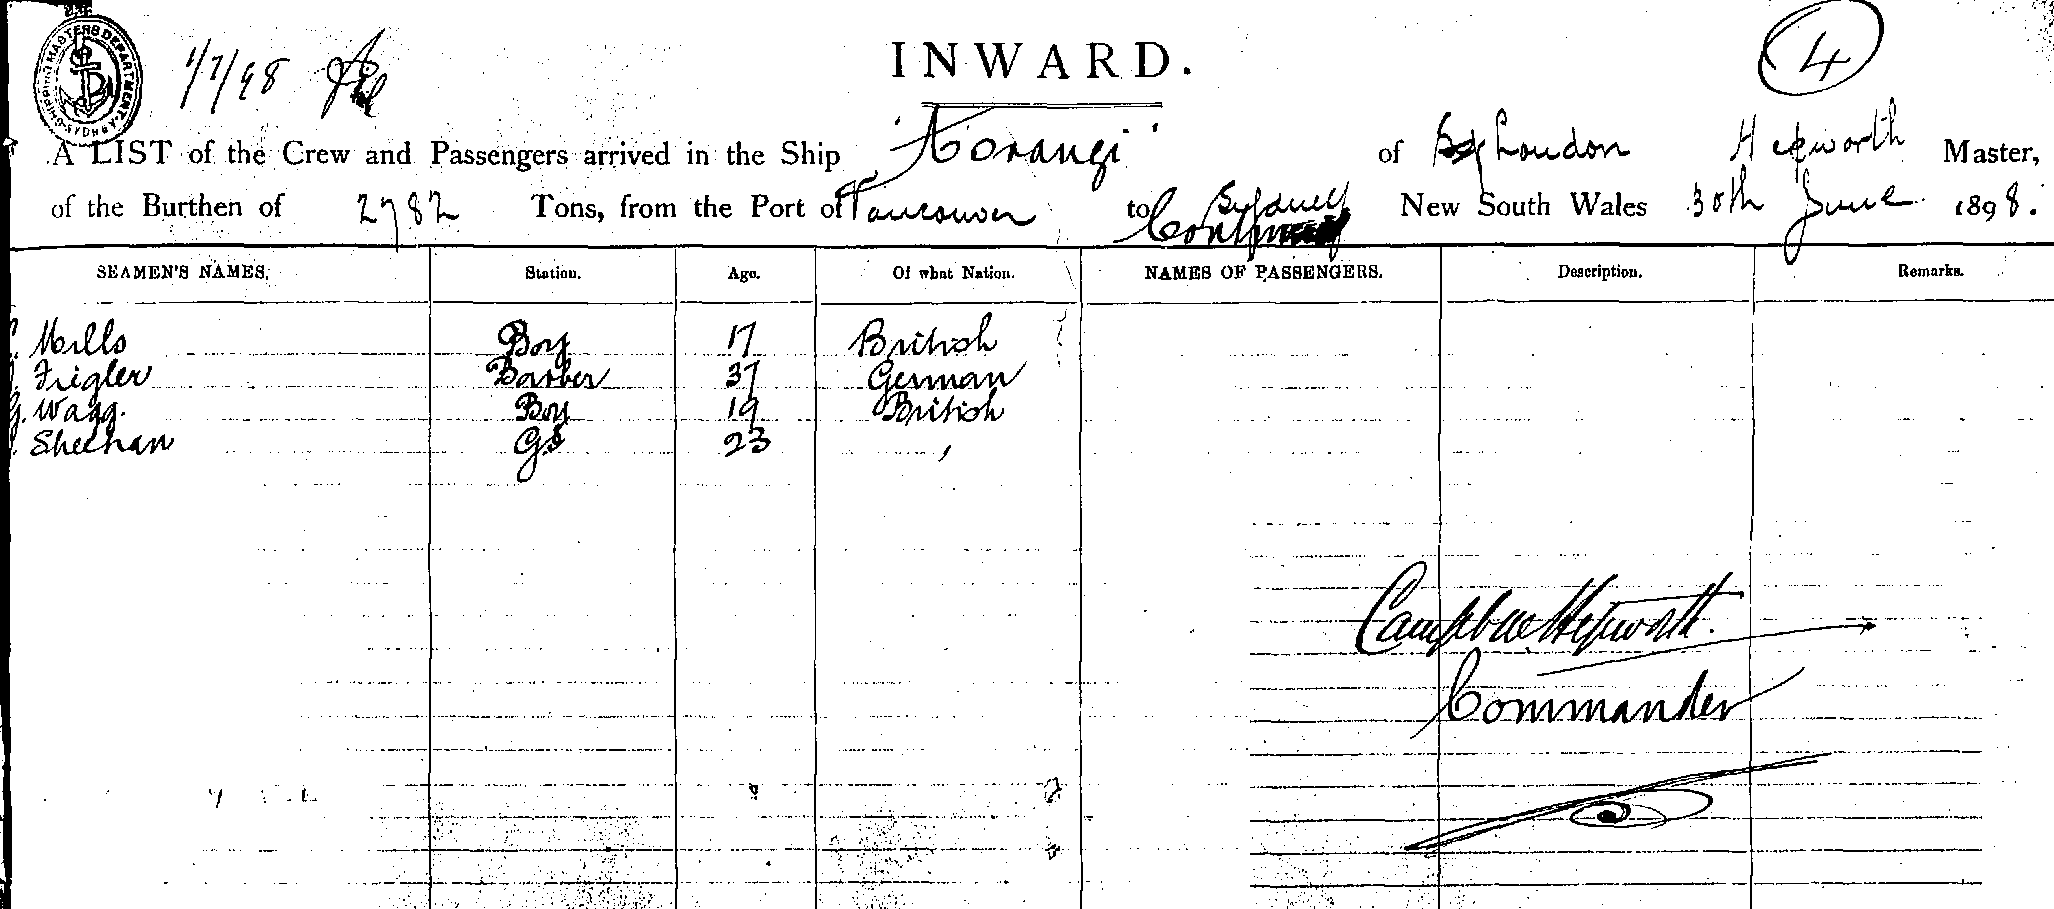 SHIPPING MASTERS DEPARTMENT SYDNEY
1/7/98
INWARD.
4
A LIST of the Crew and Passengers arrived in the Ship 'Aorangi' of London Hepworth Master,
of the Burthen of 2782 Tons, from the Port of Vancouver to Sydney New South Wales 30th June 1898.
SEAMEN'S NAMES, Station. Age. Of what Nation. NAMES OF PASSENGERS. Description. Remarks.
Mills Boy 17 British
Frigler Barber 37 German
G. Wagg. Boy 19 British
Sheehan GS 23 "
Campbell Hepworth.
Commander